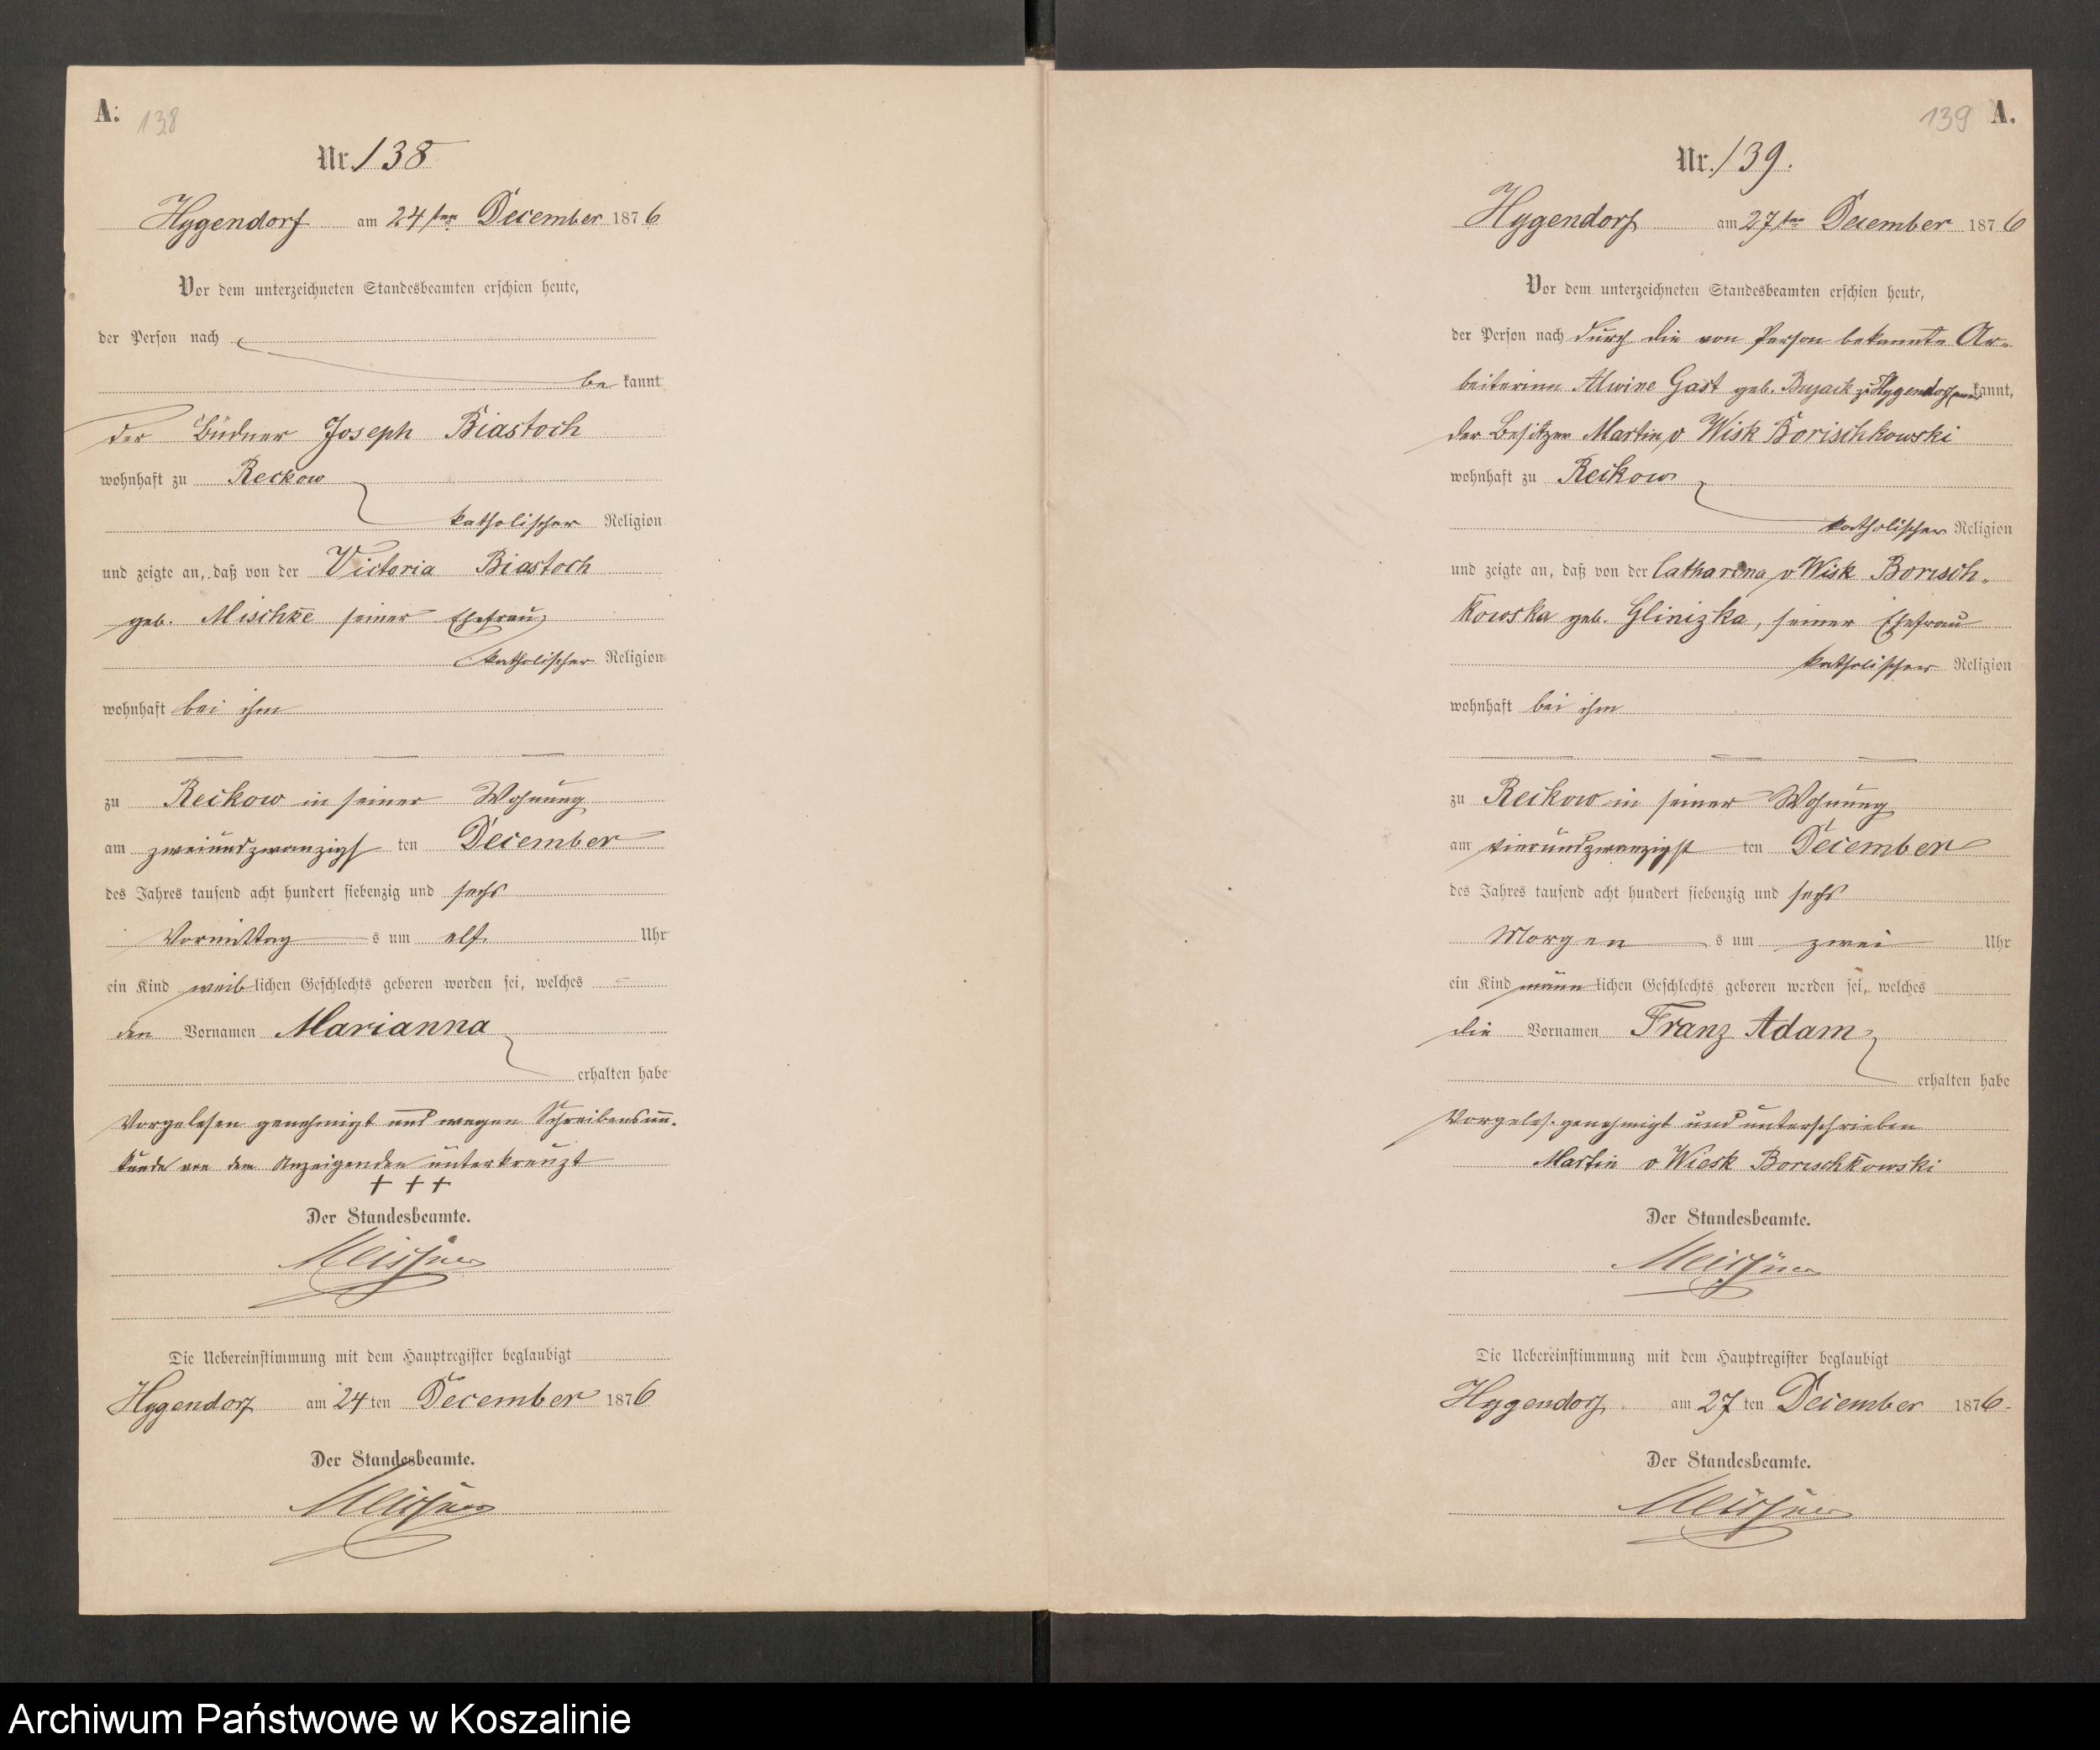 A. 138
Nr. 138
Hygendorf am 24ten December 1876
Vor dem unterzeichneten Standesbeamten erschien heute,
der Person nach
be kannt
der Büdner Joseph Biastoch
wohnhaft zu Reckow
katholischer Religion
und zeigte an, daß von der Victoria Biastoch
geb. Mischke seiner Ehefrau
katholischer Religion
wohnhaft bei ihm
zu Reckow in seiner Wohnung
am zweiundzwanzigst ten December
des Jahres tausend acht hundert siebenzig und sechs
Vormittag s um elf Uhr
ein Kind weiblichen Geschlechts geboren worden sei, welches
den Vornamen Marianna
erhalten habe
Vorgelesen genehmigt und wegen Schreibensun-
kunde von dem Anzeigenden unterkreuzt
+ + +
Der Standesbeamte.
Meissner
Die Uebereinstimmung mit dem Hauptregister beglaubigt
Hygendorf am 24 ten December 1876
Der Standesbeamte.
Meissner
139 A.
Nr. 139.
Hygendorf am 27ten December 1876
Vor dem unterzeichneten Standesbeamten erschien heute,
der Person nach durch die von Person bekannte Ar-
beiterinn Alwine Gast geb. zu Hygendorf kannt,
der Besitzer Martin v Wisk Borischkowski
wohnhaft zu Reckow
katholischer Religion
und zeigte an, daß von der Catharina v Wisk Borisch-
kowska geb. Glinizka, seiner Ehefrau
katholischer Religion
wohnhaft bei ihm
zu Reckow in seiner Wohnung
am vierundzwanzigst ten December
des Jahres tausend acht hundert siebenzig und sechs
Morgen s um zwei Uhr
ein Kind männlichen Geschlechts geboren worden sei, welches
die Vornamen Franz Adam
erhalten habe
Vorgeles. genehmigt und unterschrieben
Martin v Wiesk Borischkowski
Der Standesbeamte.
Meissner
Die Uebereinstimmung mit dem Hauptregister beglaubigt
Hygendorf am 27 ten December 1876.
Der Standesbeamte.
Meissner
Archiwum Państwowe w Koszalinie